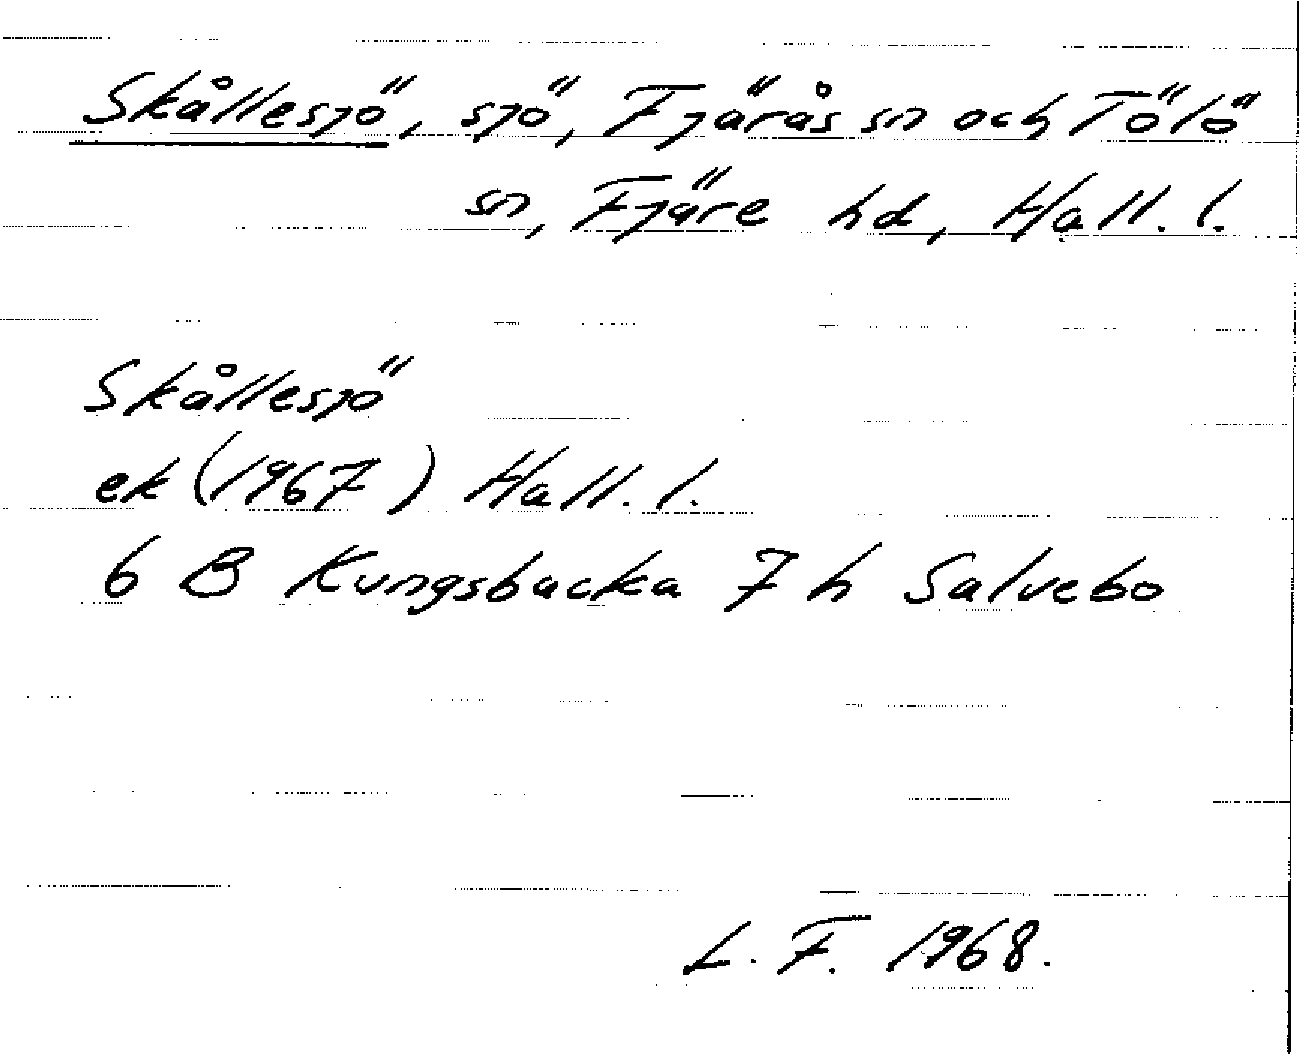 Skållesjö, sjö, Fjärås sn och Tölö
sn, Fjäre hd, Hall. l.
Skållesjö
ek (1967) Hall. l.
6 B Kungsbacka 7 h Salvebo
L. F. 1968.